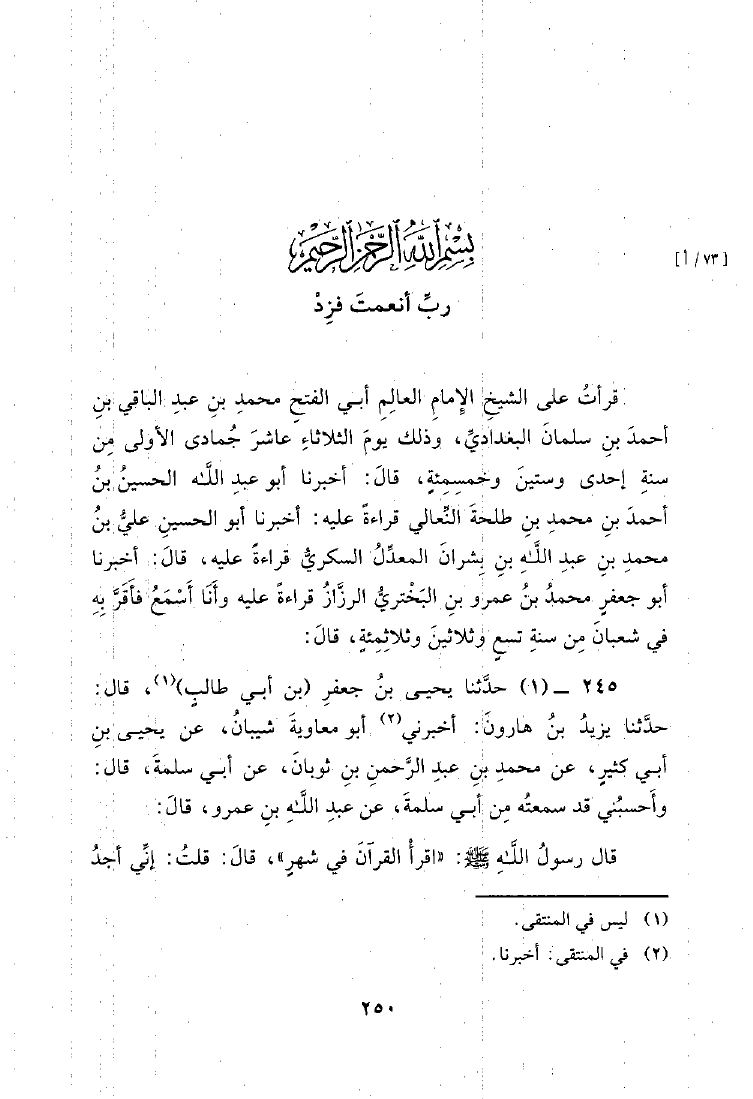 بِسْمِ ٱللَّهِ ٱلرَّحْمَٰنِ ٱلرَّحِيمِ
[٧٣/أ]
ربِّ أنعمتَ فزِدْ
قرأتُ على الشيخِ الإمامِ العالِمِ أبي الفتحِ محمدِ بنِ عبدِ الباقي بنِ
أحمدَ بنِ سلمانَ البغداديِّ، وذلك يومَ الثلاثاءِ عاشرَ جُمادى الأولى مِن
سنةِ إحدى وستينَ وخمسِمِئةٍ، قالَ: أخبرنا أبو عبدِ اللَّهِ الحسينُ بنُ
أحمدَ بنِ محمدِ بنِ طلحةَ النِّعالي قراءةً عليه: أخبرنا أبو الحسينِ عليُّ بنُ
محمدِ بنِ عبدِ اللَّهِ بنِ بِشرانَ المعدِّلُ السكريُّ قراءةً عليه، قالَ: أخبرنا
أبو جعفرٍ محمدُ بنُ عمرِو بنِ البَختريُّ الرزَّازُ قراءةً عليه وأَنَا أَسْمَعُ فأَقَرَّ بِهِ
في شعبانَ مِن سنةِ تسعٍ وثلاثينَ وثلاثِمِئةٍ، قالَ:
٢٤٥ ــ (١) حدَّثنا يحيى بنُ جعفرِ (بنِ أبي طالبٍ)(١)، قالَ:
حدَّثنا يزيدُ بنُ هارونَ: أخبرني(٢) أبو معاويةَ شيبانُ، عن يحيى بنِ
أبي كثيرٍ، عن محمدِ بنِ عبدِ الرَّحمنِ بنِ ثوبانَ، عن أبي سلمةَ، قالَ:
وأَحسبُني قد سمعتُه مِن أبي سلمةَ، عن عبدِ اللَّهِ بنِ عمرٍو، قالَ:
قال رسولُ اللَّهِ ﷺ: «اقرأْ القرآنَ في شهرٍ»، قالَ: قلتُ: إنِّي أجدُ
(١) ليس في المنتقى.
(٢) في المنتقى: أخبرنا.
٢٥٠